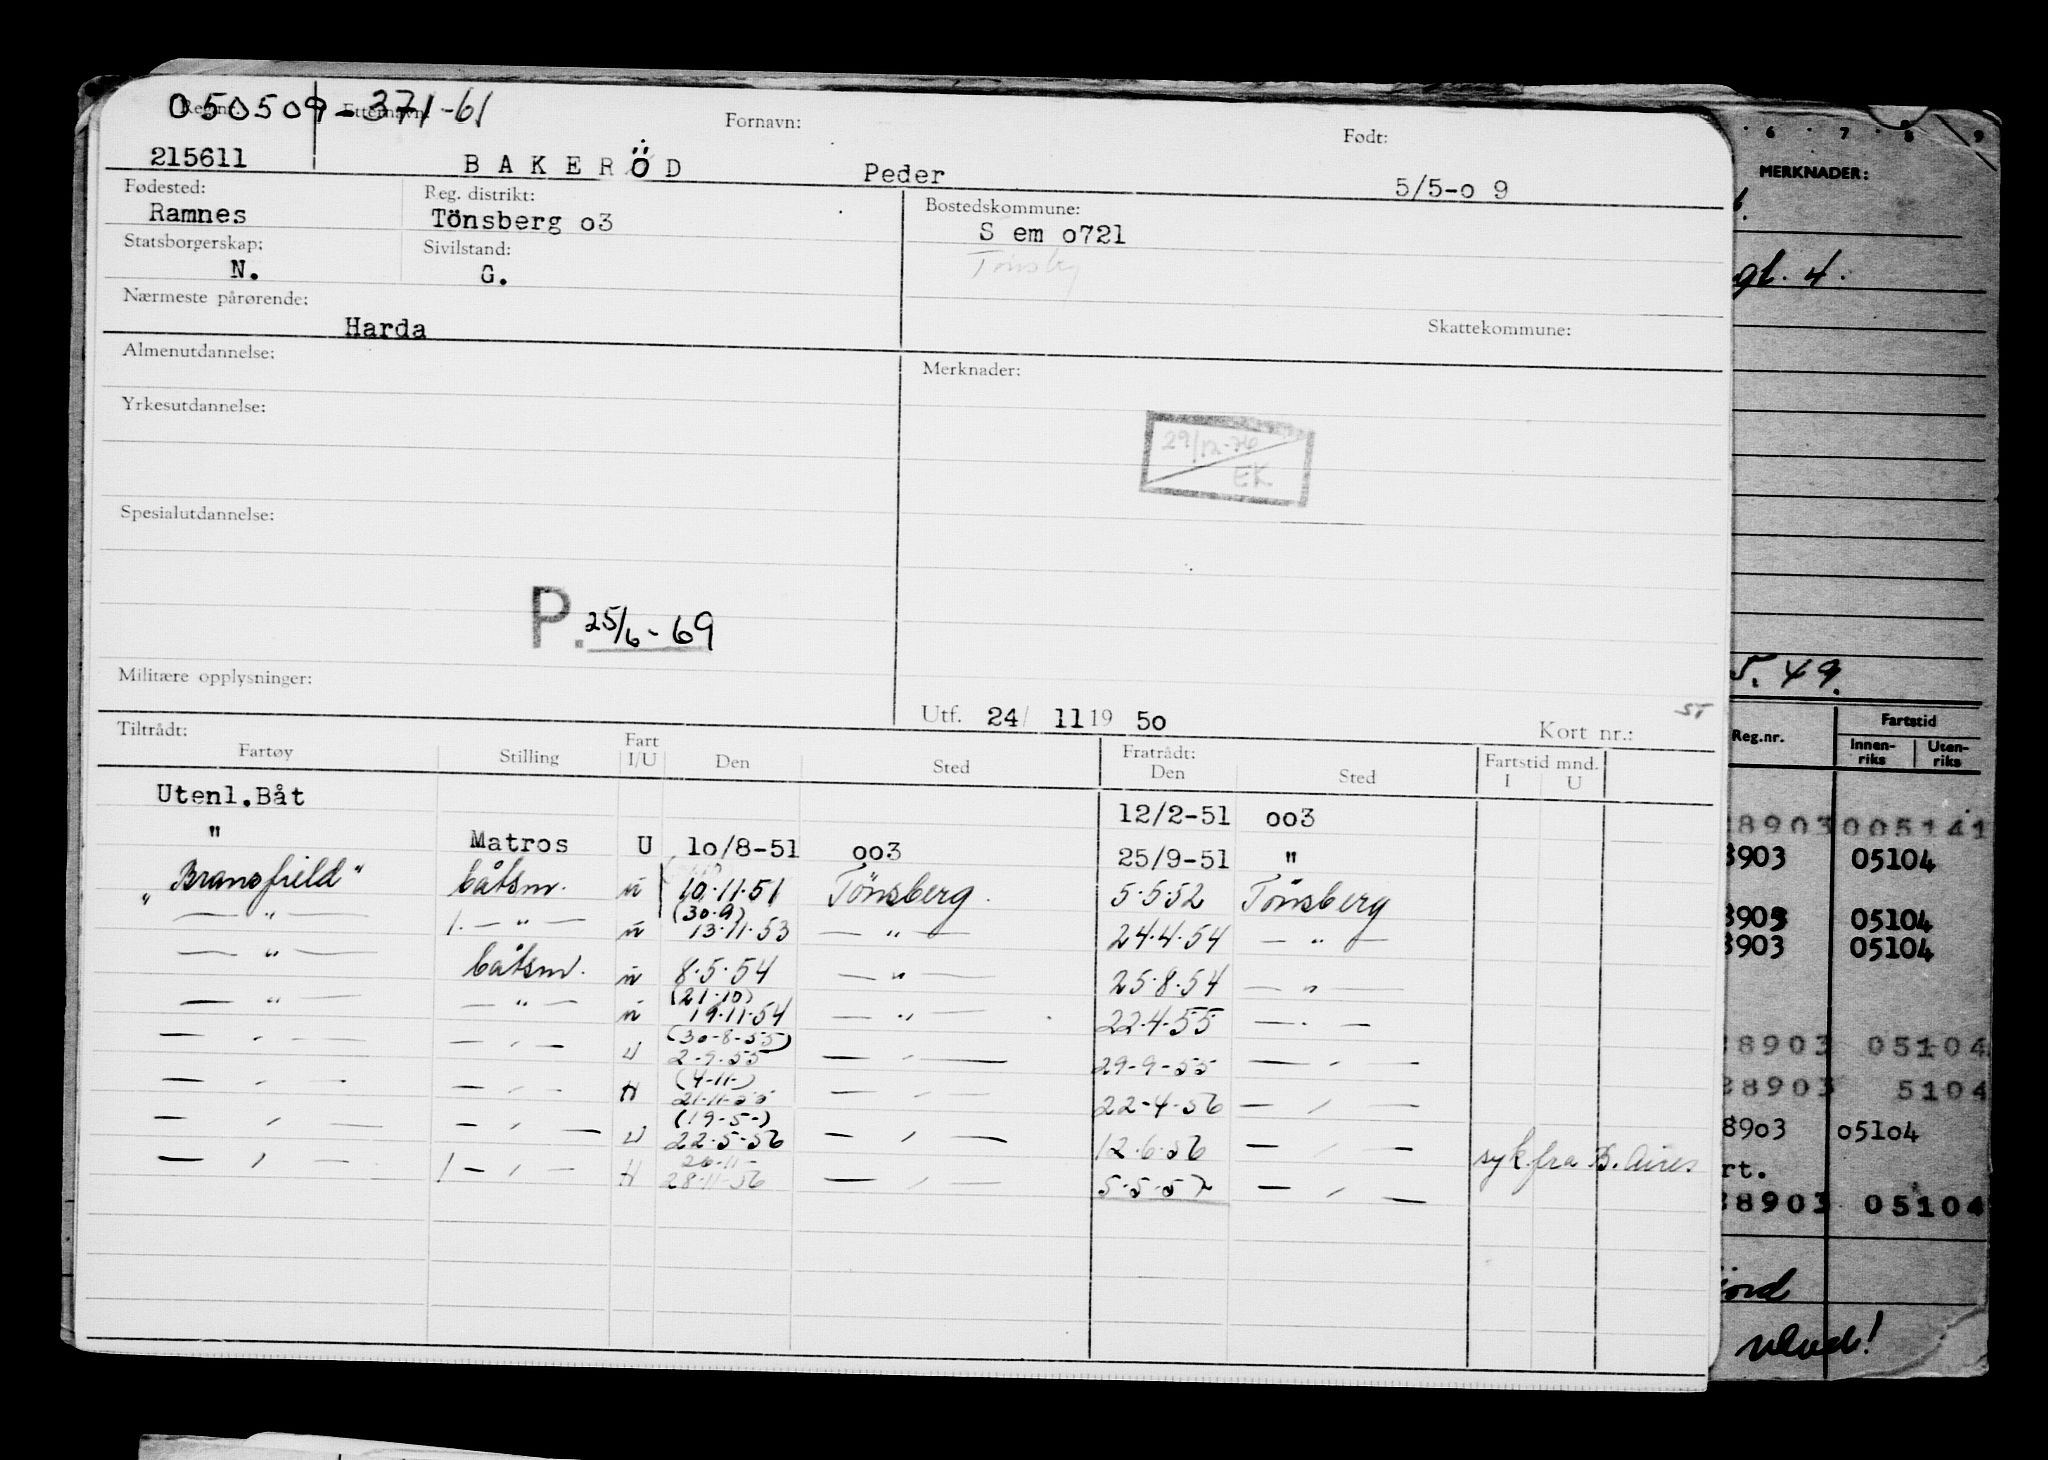 050509-371-61
Reg.nr. Etternavn: Fornavn: Født:
215611 BAKERÖD Peder 5/5-o 9
Fødested: Reg. distrikt: Bostedskommune:
Ramnes Tönsberg o3 S em o721
Statsborgerskap: Sivilstand:
N. G.
Nærmeste pårørende:
Harda Skattekommune:
Almenutdannelse: Merknader:
Yrkesutdannelse:
29/12-76
EK
Spesialutdannelse:
P. 25/6-69
Militære opplysninger:
Utf. 24/ 11 19 50 Kort nr.: ST
Tiltrådt: Fratrådt:
Fartøy Stilling Fart I/U Den Sted Den Sted Fartstid mnd. I U
Utenl.Båt 12/2-51 oo3
" Matros U 1o/8-51 oo3 25/9-51 "
"Bransfield" båtsm. u 10.11.51 Tönsberg. 5.5.52 Tönsberg
— " — 1. — " — u (30.9) 13.11.53 — " — 24.4.54 — " —
— " — båtsm. u 8.5.54 — " — 25.8.54 — " —
— " — — " — u (21.10) 19.11.54 — " — 22.4.55 — " —
— " — — " — U (30-8-55) 2-9-55 — " — 29-9-55 — " —
— " — — " — H (4-11-) 21-11-55 — " — 22-4-56 — " —
— " — — " — U (19-5-) 22-5-56 — " — 12.6.56 — " — syk fra B. Aires
— " — 1 — " — H 26-11- 28-11-56 — " — 5-5-57 — " —
6 7 8 9
MERKNADER:
gl. 4.
5.49.
Reg.nr. Fartstid
Innenriks Utenriks
8903 005141
8903 05104
8903 05104
8903 05104
8903 05104
28903 5104
8903 o51o4
rt.
8903 05104